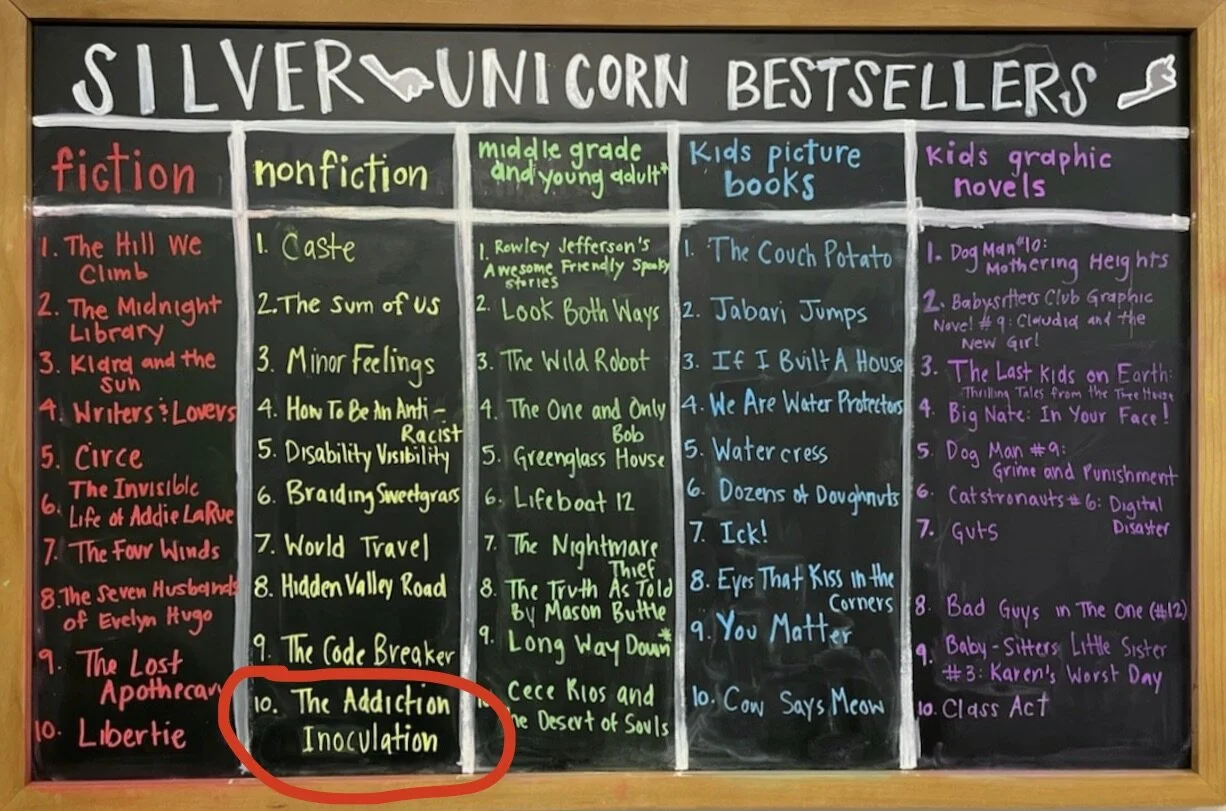 SILVER UNICORN BESTSELLERS
fiction
1. The Hill We
Climb
2. The Midnight
Library
3. Klara and the
Sun
4. Writers & Lovers
5. Circe
6. The Invisible
Life of Addie LaRue
7. The Four Winds
8. The Seven Husbands
of Evelyn Hugo
9. The Lost
Apothecary
10. Libertie
nonfiction
1. Caste
2. The Sum of Us
3. Minor Feelings
4. How To Be An Anti-
Racist
5. Disability Visibility
6. Braiding Sweetgrass
7. World Travel
8. Hidden Valley Road
9. The Code Breaker
10. The Addiction
Inoculation
middle grade
and young adult*
1. Rowley Jefferson's
Awesome Friendly Spooky
Stories
2. Look Both Ways
3. The Wild Robot
4. The One and Only
Bob
5. Greenglass House
6. Lifeboat 12
7. The Nightmare
Thief
8. The Truth As Told
By Mason Buttle
9. Long Way Down*
Cece Rios and
the Desert of Souls
Kids picture
books
1. The Couch Potato
2. Jabari Jumps
3. If I Built A House
4. We Are Water Protectors
5. Watercress
6. Dozens of Doughnuts
7. Ick!
8. Eyes That Kiss in the
Corners
9. You Matter
10. Cow Says Meow
Kids graphic
novels
1. Dog Man #10:
Mothering Heights
2. Babysitters Club Graphic
Novel #9: Claudia and the
New Girl
3. The Last Kids on Earth:
Thrilling Tales from the Tree House
4. Big Nate: In Your Face!
5. Dog Man #9:
Grime and Punishment
6. Catstronauts #6: Digital
Disaster
7. Guts
8. Bad Guys in The One (#12)
9. Baby-Sitters Little Sister
#3: Karen's Worst Day
10. Class Act